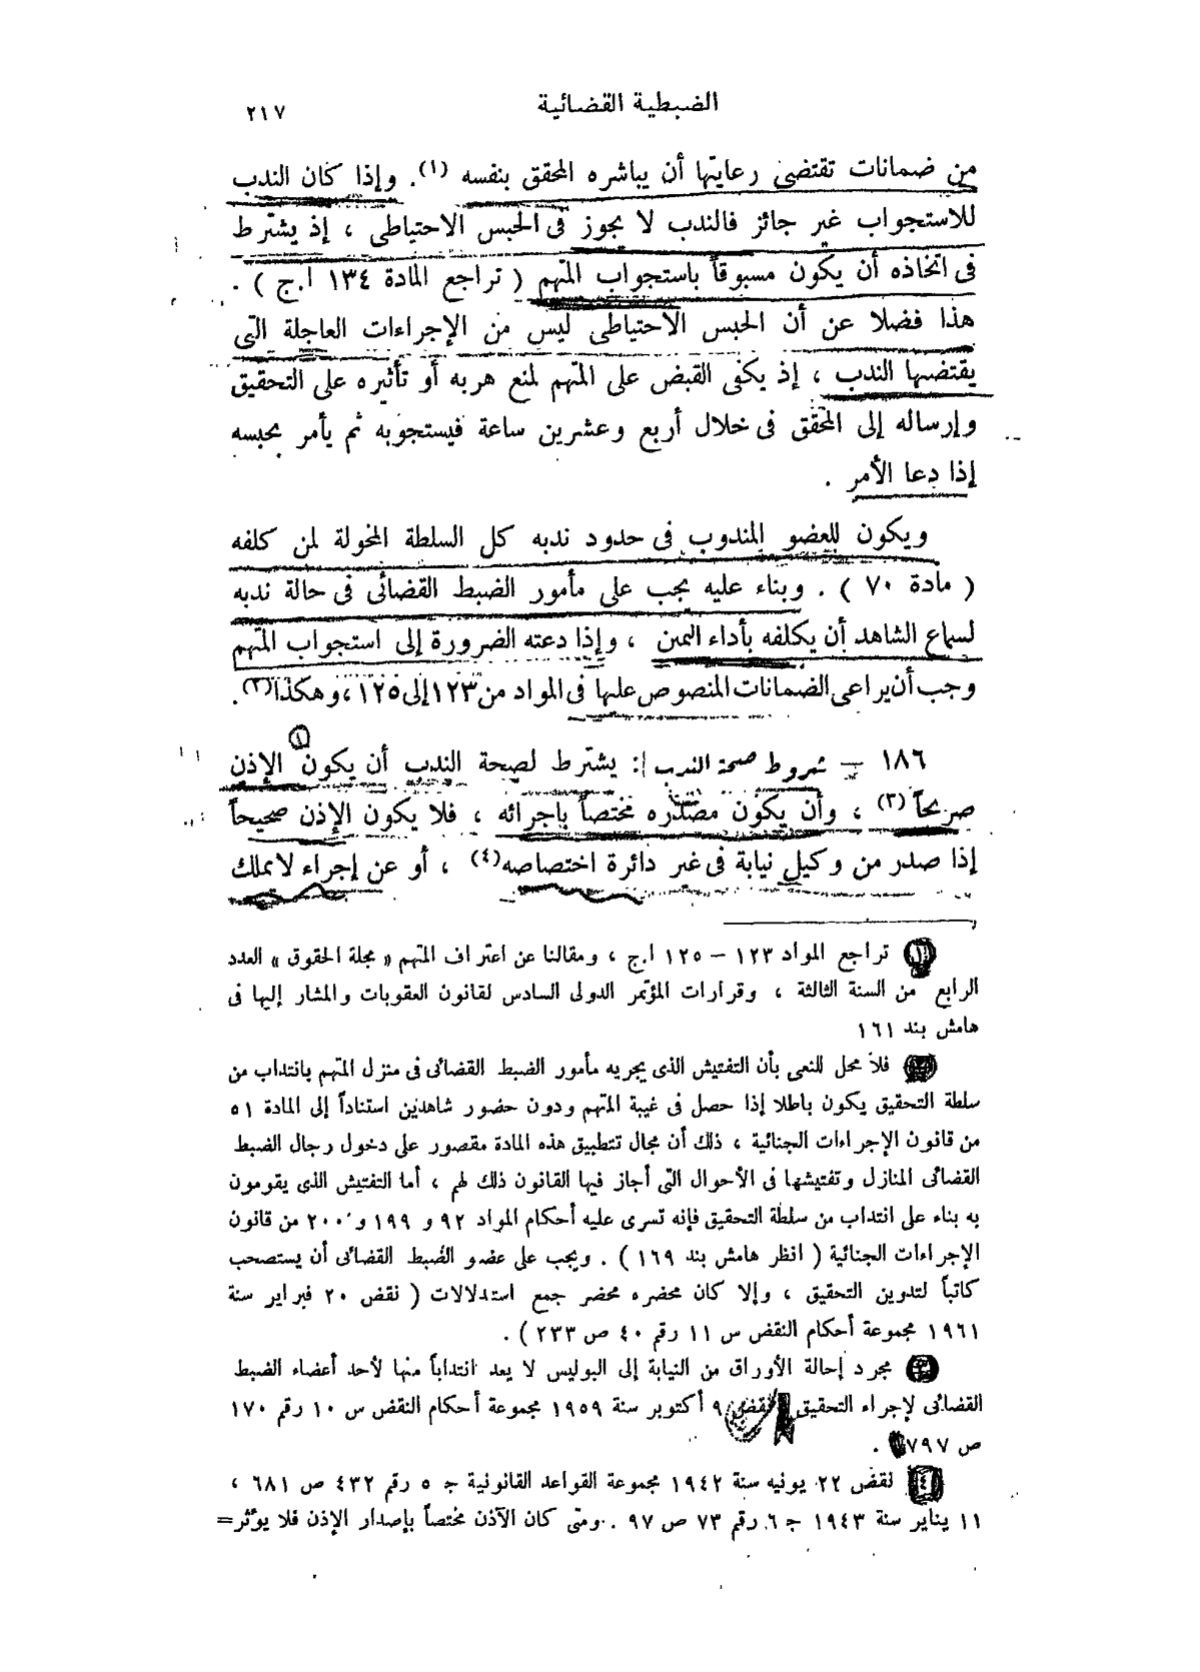 الضبطية القضائية
٢١٧
من ضمانات تقتضى رعايتها أن يباشره المحقق بنفسه (١) . وإذا كان الندب
للاستجواب غير جائز فالندب لا يجوز فى الحبس الاحتياطى ، إذ يشترط
فى اتخاذه أن يكون مسبوقاً باستجواب المتهم ( تراجع المادة ١٣٤ ا.ج ) .
هذا فضلا عن أن الحبس الاحتياطى ليس من الإجراءات العاجلة التى
يقتضيها الندب ، إذ يكفى القبض على المتهم لمنع هربه أو تأثيره على التحقيق
وإرساله إلى المحقق فى خلال أربع وعشرين ساعة فيستجوبه ثم يأمر بحبسه
إذا دعا الأمر .
ويكون للعضو المندوب فى حدود ندبه كل السلطة المخولة لمن كلفه
( مادة ٧٠ ) . وبناء عليه يجب على مأمور الضبط القضائى فى حالة ندبه
لسماع الشاهد أن يكلفه بأداء اليمين ، وإذا دعته الضرورة إلى استجواب المتهم
وجب أن يراعى الضمانات المنصوص عليها فى المواد من ١٢٣ إلى ١٢٥ ، وهكذا (٢) .
١
١٨٦ – شروط صحة الندب : يشترط لصحة الندب أن يكون الإذن
صريحاً (٣) ، وأن يكون مصدره مختصاً بإجرائه ، فلا يكون الإذن صحيحاً
إذا صدر من وكيل نيابة فى غير دائرة اختصاصه (٤) ، أو عن إجراء لا يملك
(١) تراجع المواد ١٢٣ – ١٢٥ ا.ج ، ومقالنا عن اعتراف المتهم « مجلة الحقوق » العدد
الرابع من السنة الثالثة ، وقرارات المؤتمر الدولى السادس لقانون العقوبات والمشار إليها فى
هامش بند ١٦١
(٢) فلا محل للنعى بأن التفتيش الذى يجريه مأمور الضبط القضائى فى منزل المتهم بانتداب من
سلطة التحقيق يكون باطلا إذا حصل فى غيبة المتهم ودون حضور شاهدين استناداً إلى المادة ٥١
من قانون الإجراءات الجنائية ، ذلك أن مجال تتطبيق هذه المادة مقصور على دخول رجال الضبط
القضائى المنازل وتفتيشها فى الأحوال التى أجاز فيها القانون ذلك لهم ، أما التفتيش الذى يقومون
به بناء على انتداب من سلطة التحقيق فإنه تسرى عليه أحكام المواد ٩٢ و ١٩٩ و ٢٠٠ من قانون
الإجراءات الجنائية ( انظر هامش بند ١٦٩ ) . ويجب على عضو الضبط القضائى أن يستصحب
كاتباً لتدوين التحقيق ، وإلا كان محضره محضر جمع استدلالات ( نقض ٢٠ فبراير سنة
١٩٦١ مجموعة أحكام النقض س ١١ رقم ٤٠ ص ٢٣٣ ) .
(٣) مجرد إحالة الأوراق من النيابة إلى البوليس لا يعد انتداباً منها لأحد أعضاء الضبط
القضائى لإجراء التحقيق نقض ٩ أكتوبر سنة ١٩٥٩ مجموعة أحكام النقض س ١٠ رقم ١٧٠
ص ٧٩٧ .
(٤) نقض ٢٢ يونيه سنة ١٩٤٢ مجموعة القواعد القانونية ج ٥ رقم ٤٣٢ ص ٦٨١ ،
١١ يناير سنة ١٩٤٣ ج ٦ رقم ٧٣ ص ٩٧ . ومتى كان الآذن مختصاً بإصدار الإذن فلا يؤثر=